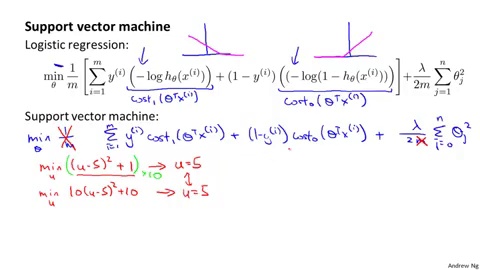 Support vector machine
Logistic regression:
min_θ 1/m [ ∑_{i=1}^{m} y^{(i)} (−log h_θ(x^{(i)})) + (1 − y^{(i)}) ((−log(1 − h_θ(x^{(i)})))) ] + λ/2m ∑_{j=1}^{n} θ_j^2
cost₁(θᵀx^{(i)}) cost₀(θᵀx^{(i)})
Support vector machine:
min_θ 1/m ∑_{i=1}^{m} y^{(i)} cost₁(θᵀx^{(i)}) + (1−y^{(i)}) cost₀(θᵀx^{(i)}) + λ/2m ∑_{i=0}^{n} θ_j^2
min_u ((u−5)²+1) ×10 → u=5
min_u 10(u−5)²+10 → u=5
Andrew Ng